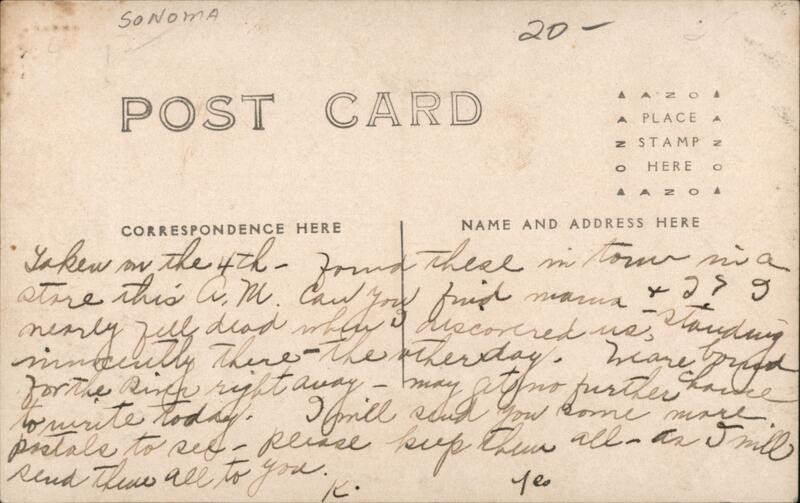 SONOMA
20-
POST CARD
AZO
PLACE
STAMP
HERE
AZO
CORRESPONDENCE HERE
NAME AND ADDRESS HERE
Taken on the 4th - Found these in town in a
store this A.M. Can you find mama & I? I
nearly fell dead when I discovered us, standing
innocently there - the other day. We are bound
for the River right away - may get no further chance
to write today. I will send you some more
postals to see - please keep them all - as I will
send them all to you.
K.